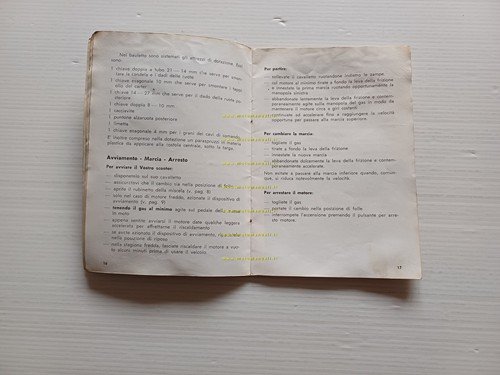 Nel bauletto sono sistemati gli attrezzi di dotazione. Essi
sono:
1 chiave doppia a tubo 21 — 14 mm che serve per smon-
tare la candela e i dadi delle ruote
1 chiave esagonale 10 mm che serve per smontare i tappi
olio del carter
1 chiave 14 — 27 mm che serve per il dado della ruota po-
steriore
1 chiave doppia 8 — 10 mm
1 cacciavite
1 limetta
1 puntone alzaruota posteriore
1 chiave esagonale 4 mm per i grani dei cavi di comando
E' inoltre compreso nella dotazione un paraspruzzi in materia
plastica da applicare alla costola centrale, sotto la targa.
Avviamento - Marcia - Arresto
Per avviare il Vostro scooter:
— disponetelo sul suo cavalletto
— assicuratevi che il cambio sia nella posizione di folle
— aprite il rubinetto della miscela (v. pag. 8)
— solo nel caso di motore freddo, azionate il dispositivo di
avviamento (v. pag. 9)
— tenendo il gas al minimo agite sul pedale della messa
in moto
— appena sentite avviarsi il motore date qualche leggera
accelerata per affrettarne il riscaldamento
— se avete azionato il dispositivo di avviamento, riportatelo
nella posizione di riposo
— nella stagione fredda, lasciate riscaldare il motore a vuo-
to alcuni minuti prima di usare il veicolo
16
Per partire:
— sollevate il cavalletto ruotandone indietro le zampe.
— col motore al minimo tirate a fondo la leva della frizione
e innestate la prima marcia ruotando opportunamente la
manopola sinistra
— abbandonate lentamente la leva della frizione e contem-
poraneamente agite sulla manopola del gas in modo da
mantenere il motore circa a giri costanti
— continuate ad accelerare fino a raggiungere la velocità
opportuna per passare alla marcia superiore.
Per cambiare la marcia:
— togliete il gas
— tirate a fondo la leva della frizione
— innestate la nuova marcia
— abbandonate dolcemente la leva della frizione e contem-
poraneamente accelerate.
Non esitate a passare alla marcia inferiore quando, comun-
que, si riduca notevolmente la velocità.
Per arrestare il motore:
— togliete il gas
— portate il cambio nella posizione di folle
— interrompete l'accensione premendo il pulsante per arre-
sto motore.
17